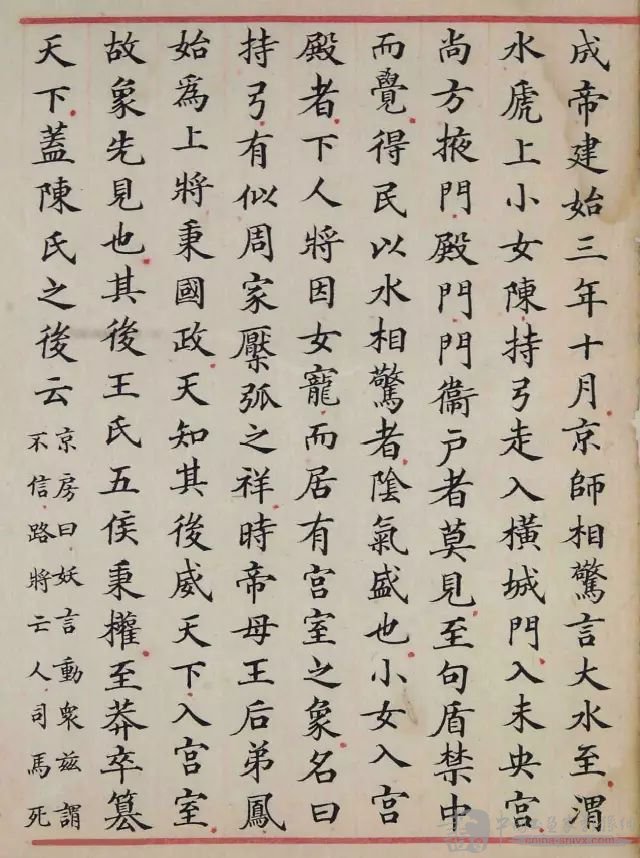 成帝建始三年十月京師相驚言大水至渭
水虒上小女陳持弓走入橫城門入未央宮
尚方掖門殿門門衞戶者莫見至句盾禁中
而覺得民以水相驚者陰氣盛也小女入宮
殿者下人將因女寵而居有宮室之象名曰
持弓有似周家檿弧之祥時帝母王后弟鳳
始為上將秉國政天知其後威天下入宮室
故象先見也其後王氏五侯秉權至莽卒篡
天下蓋陳氏之後云
京房曰妖言動衆兹謂
不信路將亡人司馬死